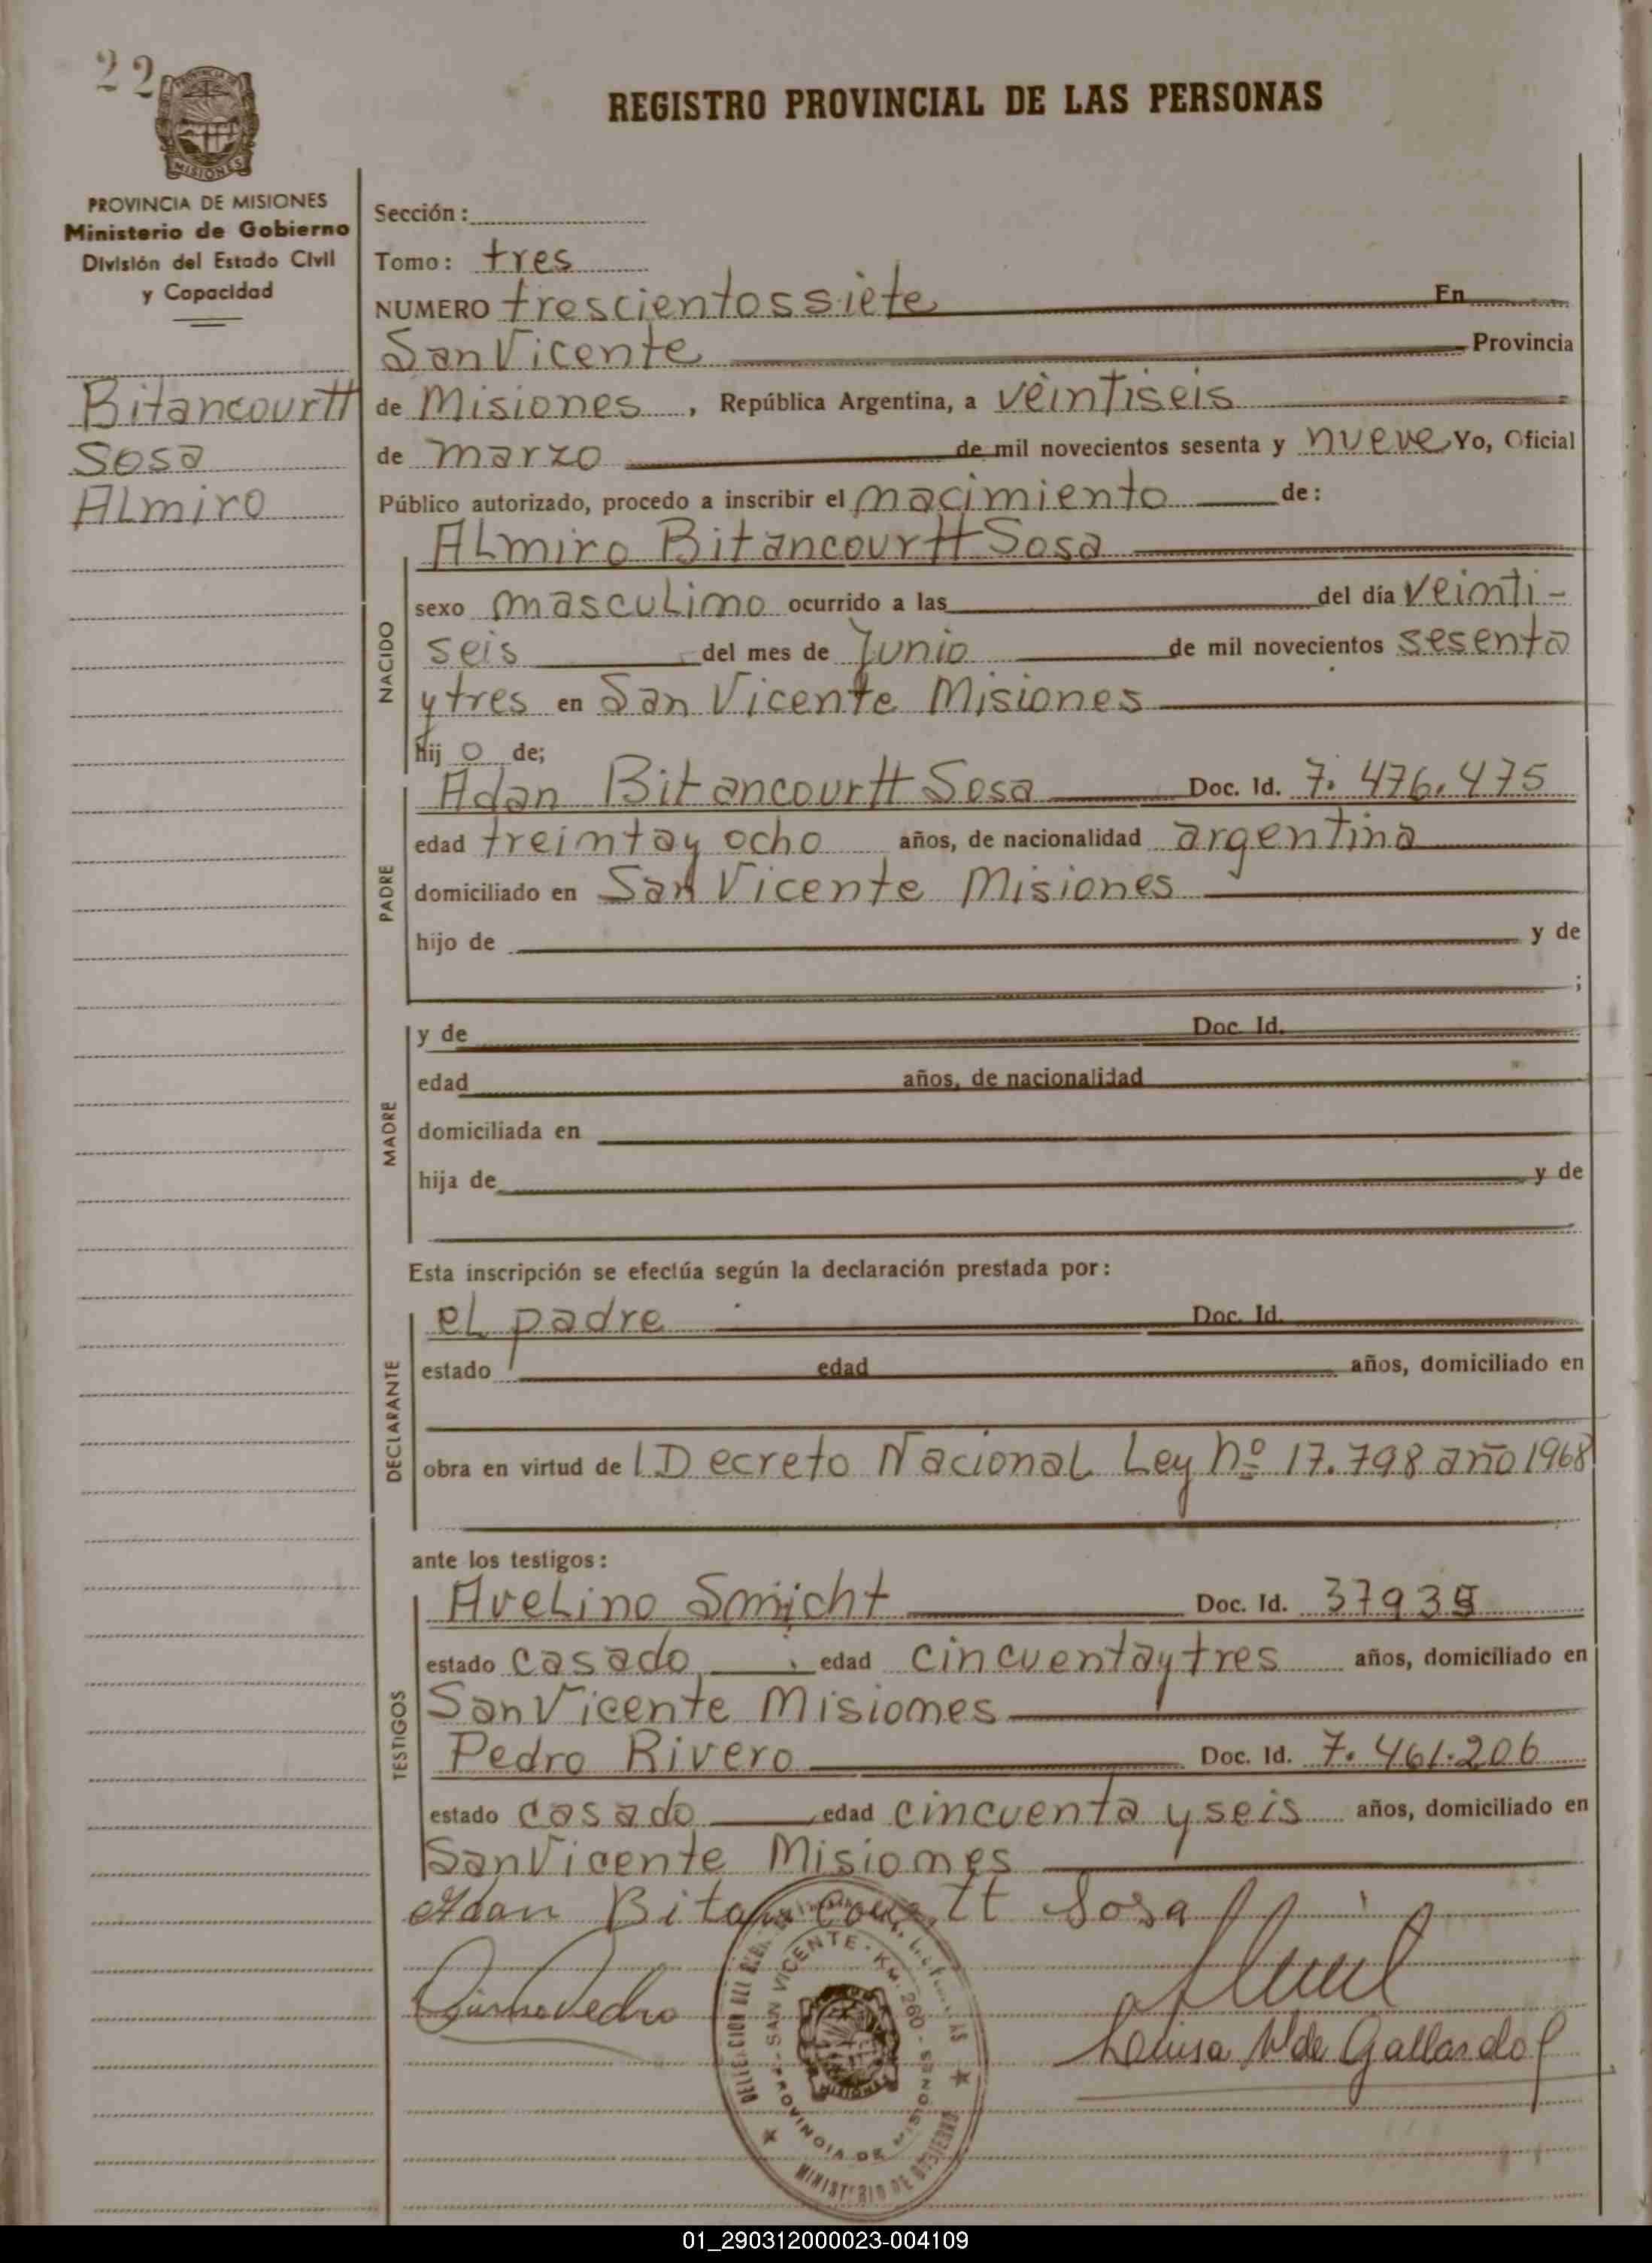 22
REGISTRO PROVINCIAL DE LAS PERSONAS
MISIONES
PROVINCIA DE MISIONES
Ministerio de Gobierno
División del Estado Civil
y Capacidad
Bitancourtt
Sosa
Almiro
Sección:
Tomo: tres
NUMERO trescientossiete En
San Vicente Provincia
de Misiones, República Argentina, a veintiseis
de marzo de mil novecientos sesenta y nueve Yo, Oficial
Público autorizado, procedo a inscribir el nacimiento de:
NACIDO
Almiro Bitancourtt Sosa
sexo masculino ocurrido a las del día veinti-
seis del mes de Junio de mil novecientos sesenta
y tres en San Vicente Misiones
hijo de;
PADRE
Adan Bitancourtt Sosa Doc. Id. 7.476.475
edad treinta y ocho años, de nacionalidad argentina
domiciliado en San Vicente Misiones
hijo de y de
;
MADRE
y de Doc. Id.
edad años, de nacionalidad
domiciliada en
hija de y de
Esta inscripción se efectúa según la declaración prestada por:
DECLARANTE
el padre Doc. Id.
estado edad años, domiciliado en
obra en virtud del Decreto Nacional Ley nº 17.798 año 1968
ante los testigos:
TESTIGOS
Avelino Smicht Doc. Id.
estado casado edad cincuenta y tres años, domiciliado en
San Vicente Misiones
Pedro Rivero Doc. Id. 7.461.206
estado casado edad cincuenta y seis años, domiciliado en
San Vicente Misiones
Adan Bitancourtt Sosa
Pedro
Luisa de Gallardo
SAN VICENTE - KM. 260 - MISIONES
PROVINCIA DE MISIONES
MINISTERIO DE GOBIERNO
01_290312000023-004109